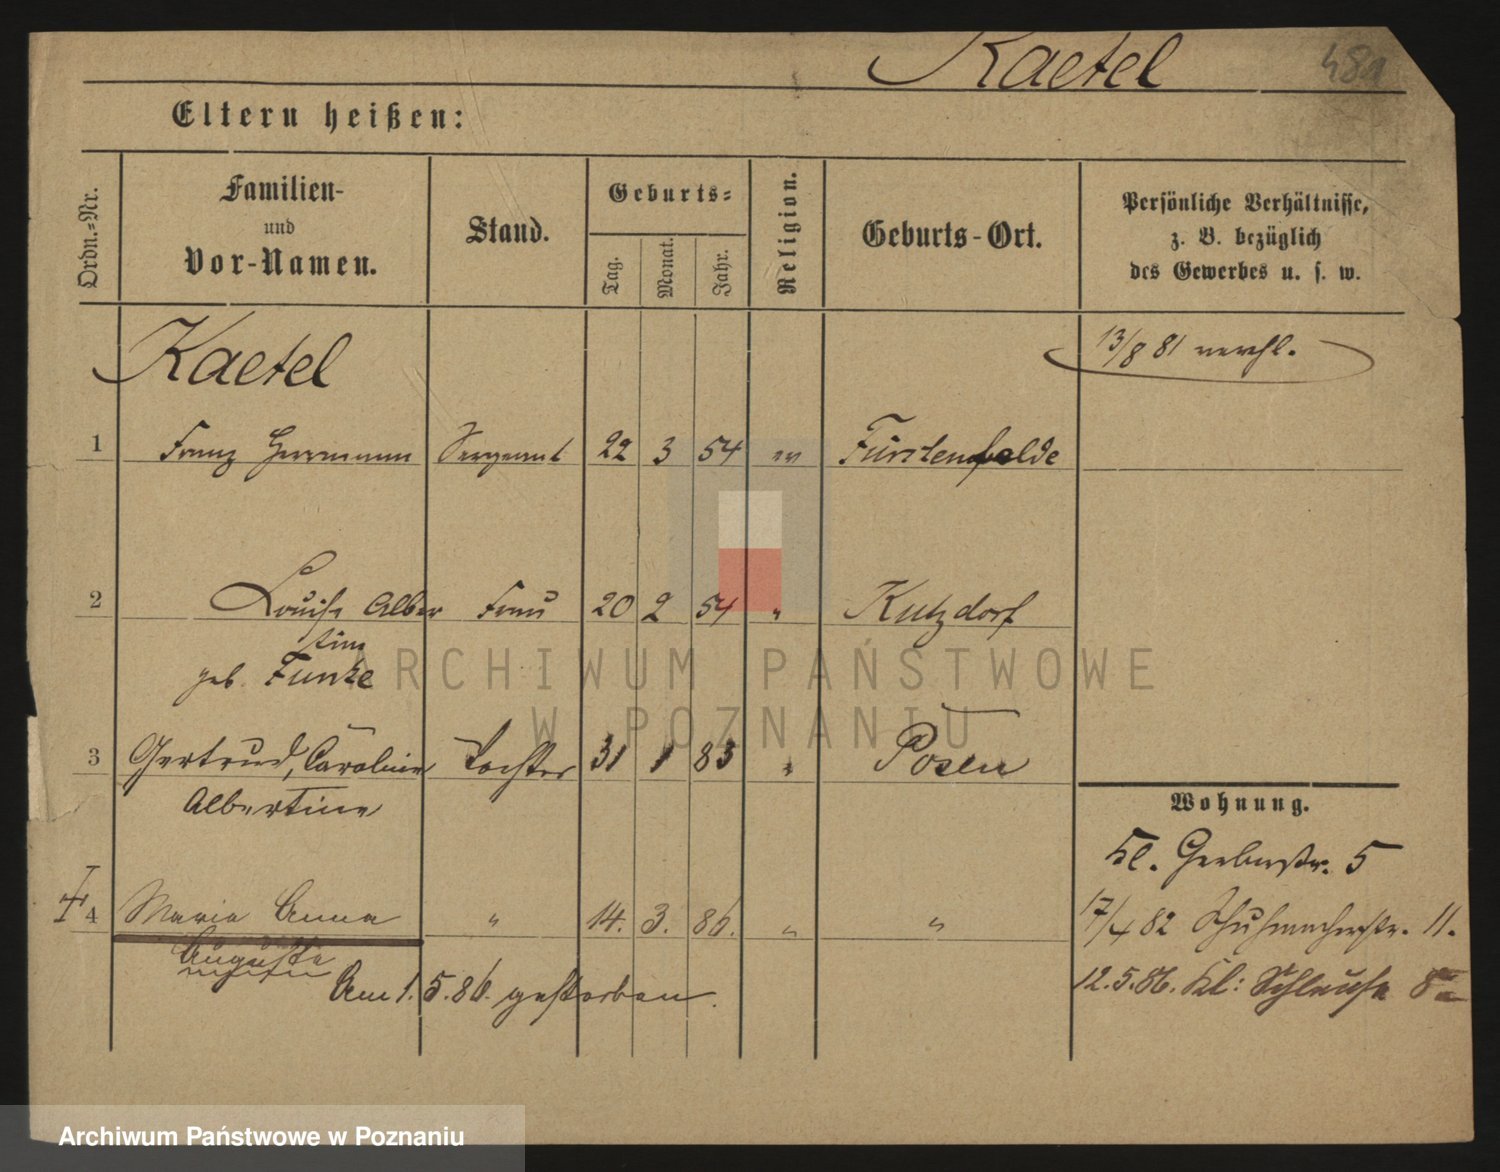 Kaetel
481
Eltern heißen:
Ordn.=Nr.
Familien-
und
Vor-Namen.
Stand.
Geburts=
Tag.
Monat.
Jahr.
Religion.
Geburts-Ort.
Persönliche Verhältnisse,
z. B. bezüglich
des Gewerbes u. s. w.
Kaetel
13/8 81 verehl.
1 Franz Herrmann Sergeant 22 3 54 ev Fürstenfelde
2 Louise Alber Frau 20 2 54 " Kutzdorf
tine
geb. Funke
3 Gertrud, Caroline Tochter 31 1 83 " Posen
Albertine
Wohnung.
Kl. Gerberstr. 5
4 Maria Anna " 14. 3. 86. " "
17/4 82 Schuhmacherstr. 11.
Auguste
Am 1. 5. 86. gestorben.
12.5.86. Kl: Schleuse 8
ARCHIWUM PAŃSTWOWE
W POZNANIU
Archiwum Państwowe w Poznaniu